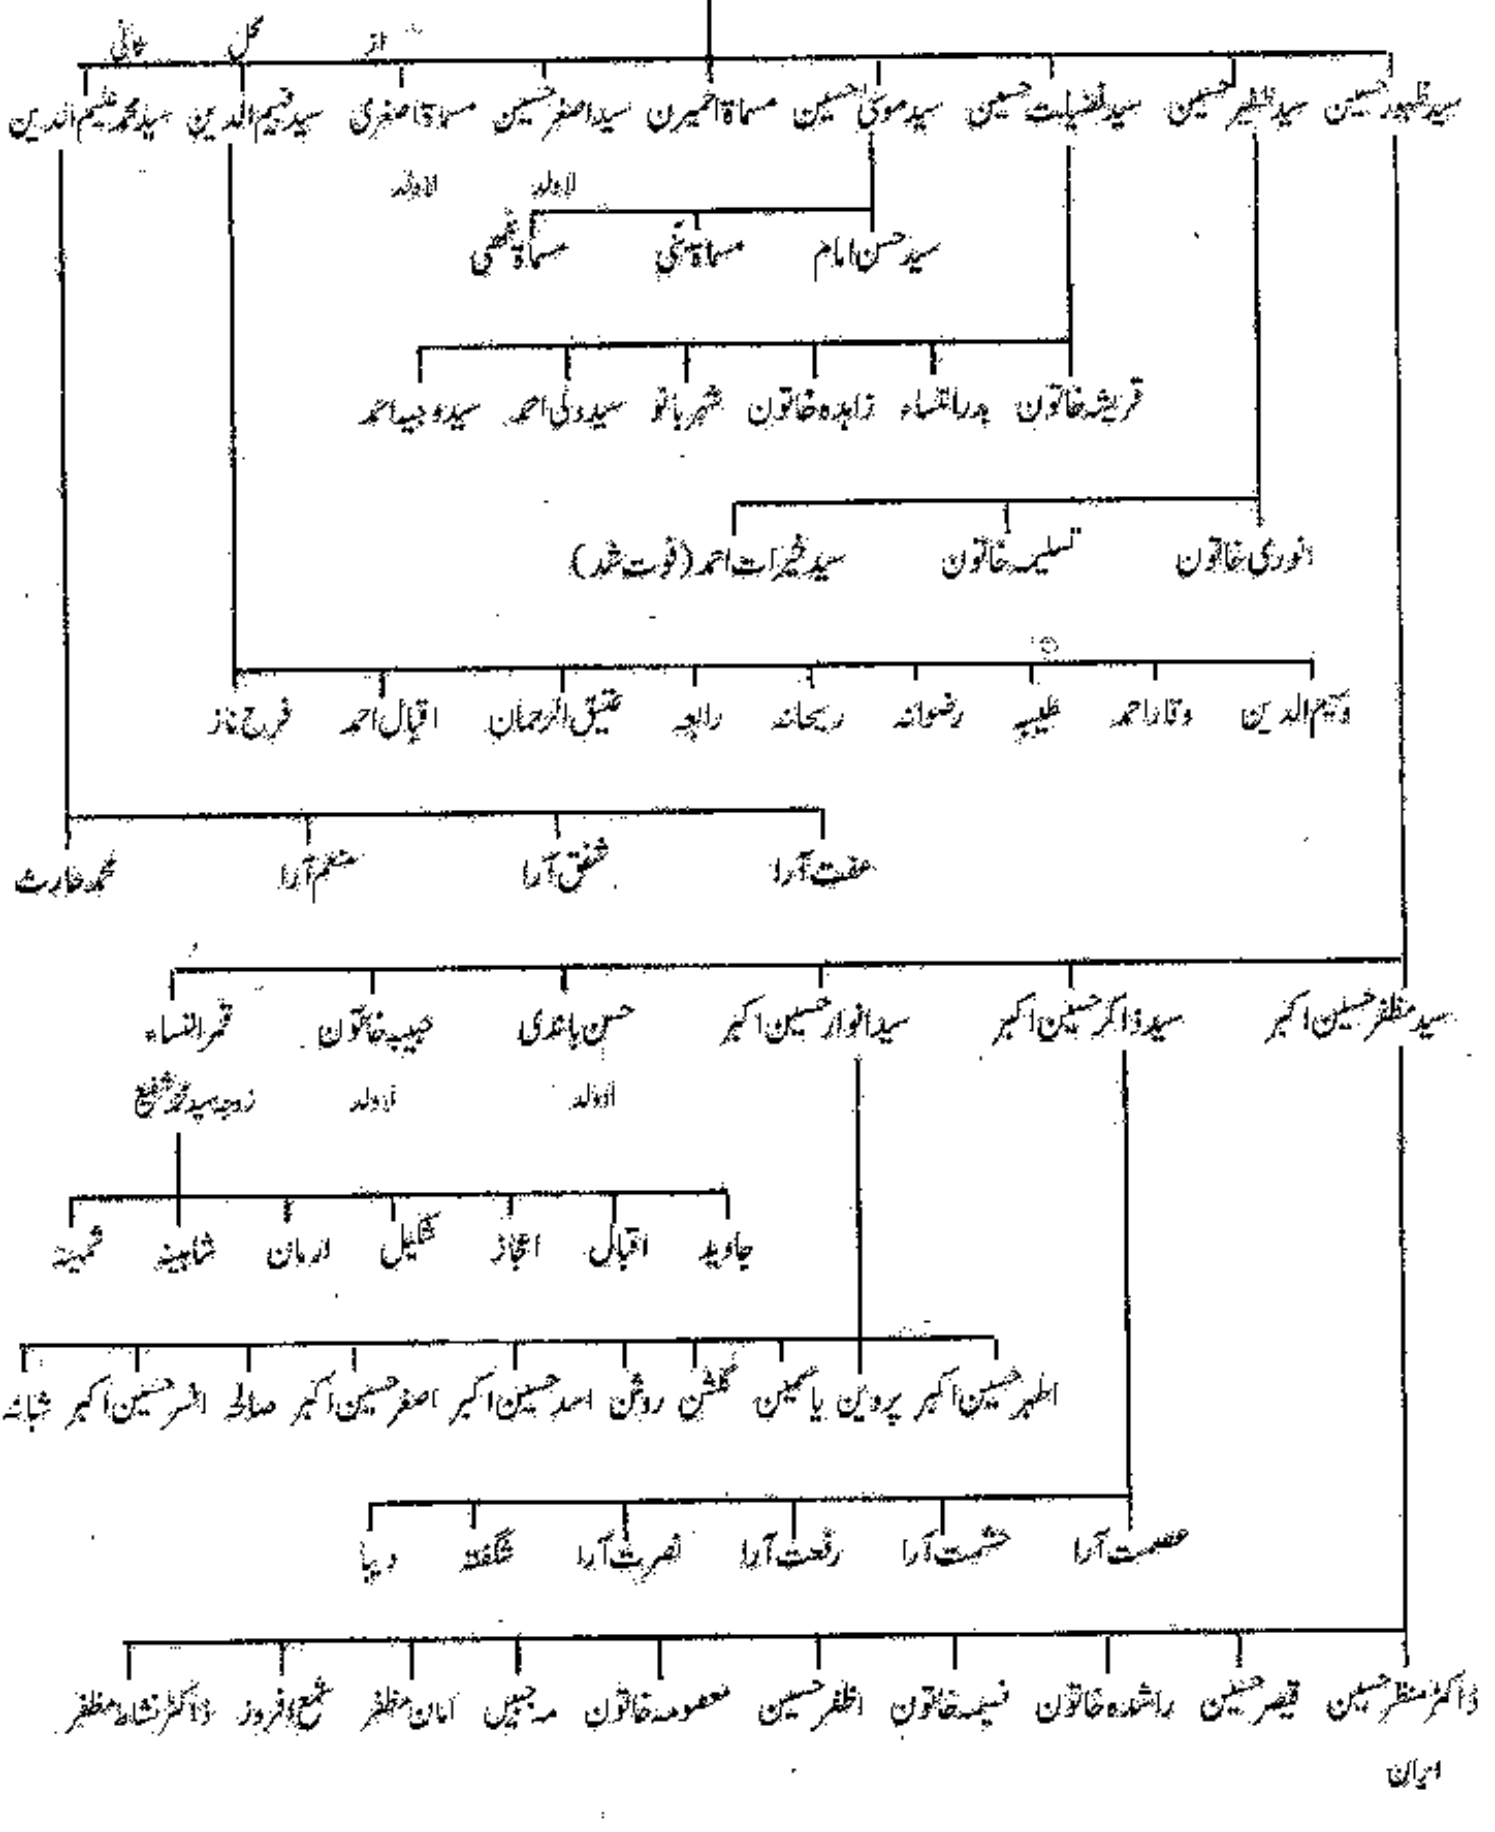 از محل ثانی
سید ظہور حسین سید ظہیر حسین سید فضیلت حسین سید موسیٰ حسین مسماۃ حمیرن سید اصغر حسین مسماۃ اصغری سید فہیم الدین سید محمد علیم الدین
لاولد لاولد
سید حسن امام مسماۃ ننھی
قریشہ خاتون بدرالنساء زاہدہ خاتون شہر بانو سید ولی احمد سید وحید احمد
انوری خاتون تسلیمہ خاتون سید خیرات احمد (فوت شد)
وسیم الدین وقار احمد طیبہ رضوانہ ریحانہ رابعہ عتیق الرحمان اقبال احمد فرح ناز
عفت آرا شفق آرا صنم آرا محمد حارث
سید مظفر حسین اکبر سید ذاکر حسین اکبر سید انوار حسین اکبر حسن باندی حبیبہ خاتون قمر النساء
لاولد لاولد زوجہ سید محمد شفیع
جاوید اقبال اعجاز شکیل ارمان شاہینہ ثمینہ
اطہر حسین اکبر پروین یاسمین گلشن روشن اسد حسین اکبر اصغر حسین اکبر صالحہ افسر حسین اکبر شبانہ
عصمت آرا حشمت آرا رفعت آرا نصرت آرا شگفتہ دیبا
ڈاکٹر منظر حسین قیصر حسین راشدہ خاتون نسیمہ خاتون اظفر حسین معصومہ خاتون مہ جبیں امان مظفر شمع افروز ڈاکٹر نشاط مظفر
ایران